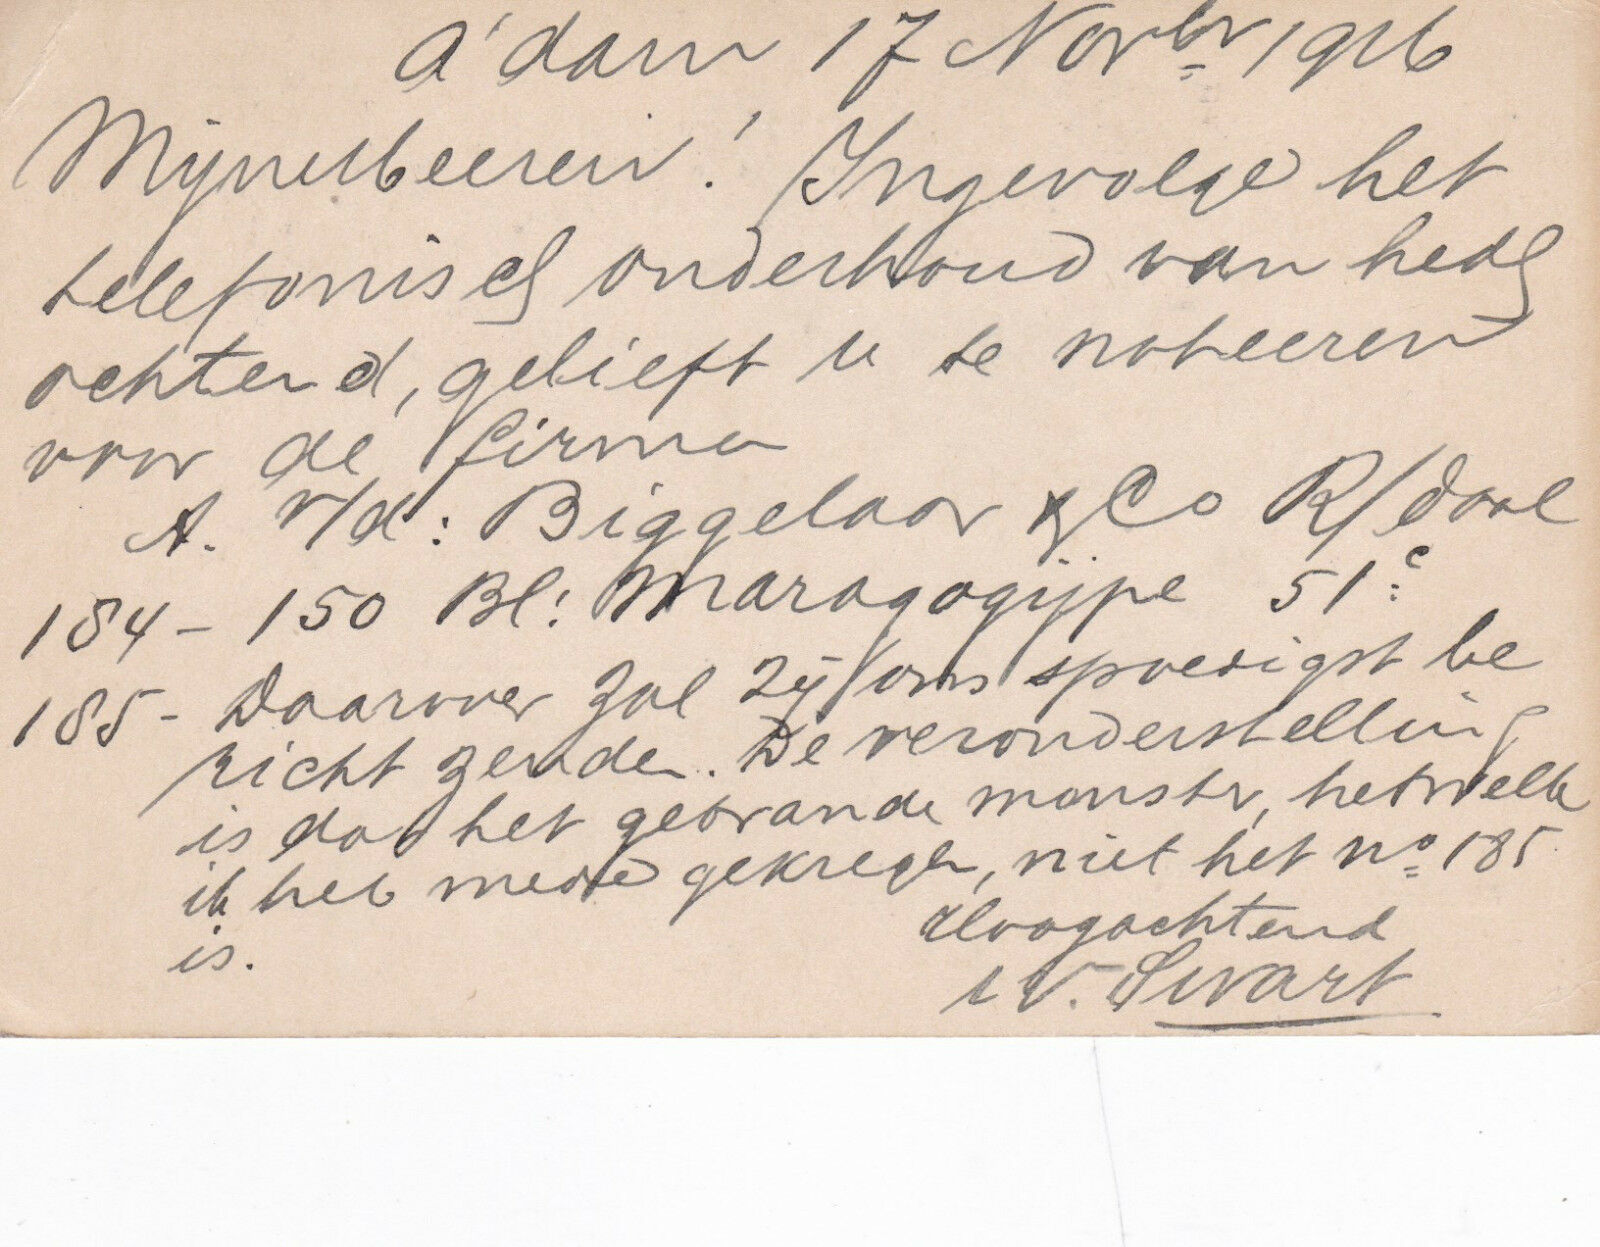 A'dam 17 Novbr 1916
Mijneheeren! Ingevolge het
telefonisch onderhoud van hedg
ochtend, gelieft u te noteeren
voor de firma
A. v/d: Biggelaar & Co R/daal
184 - 150 Bl: Maragogijpe 51c
185 - Daarover zal zij ons spoedigst be
richt zenden. De veronderstelling
is dat het gebrande monster, hetwelk
ik heb mede gekregen, niet het no 185
is.
Hoogachtend
W. Swart